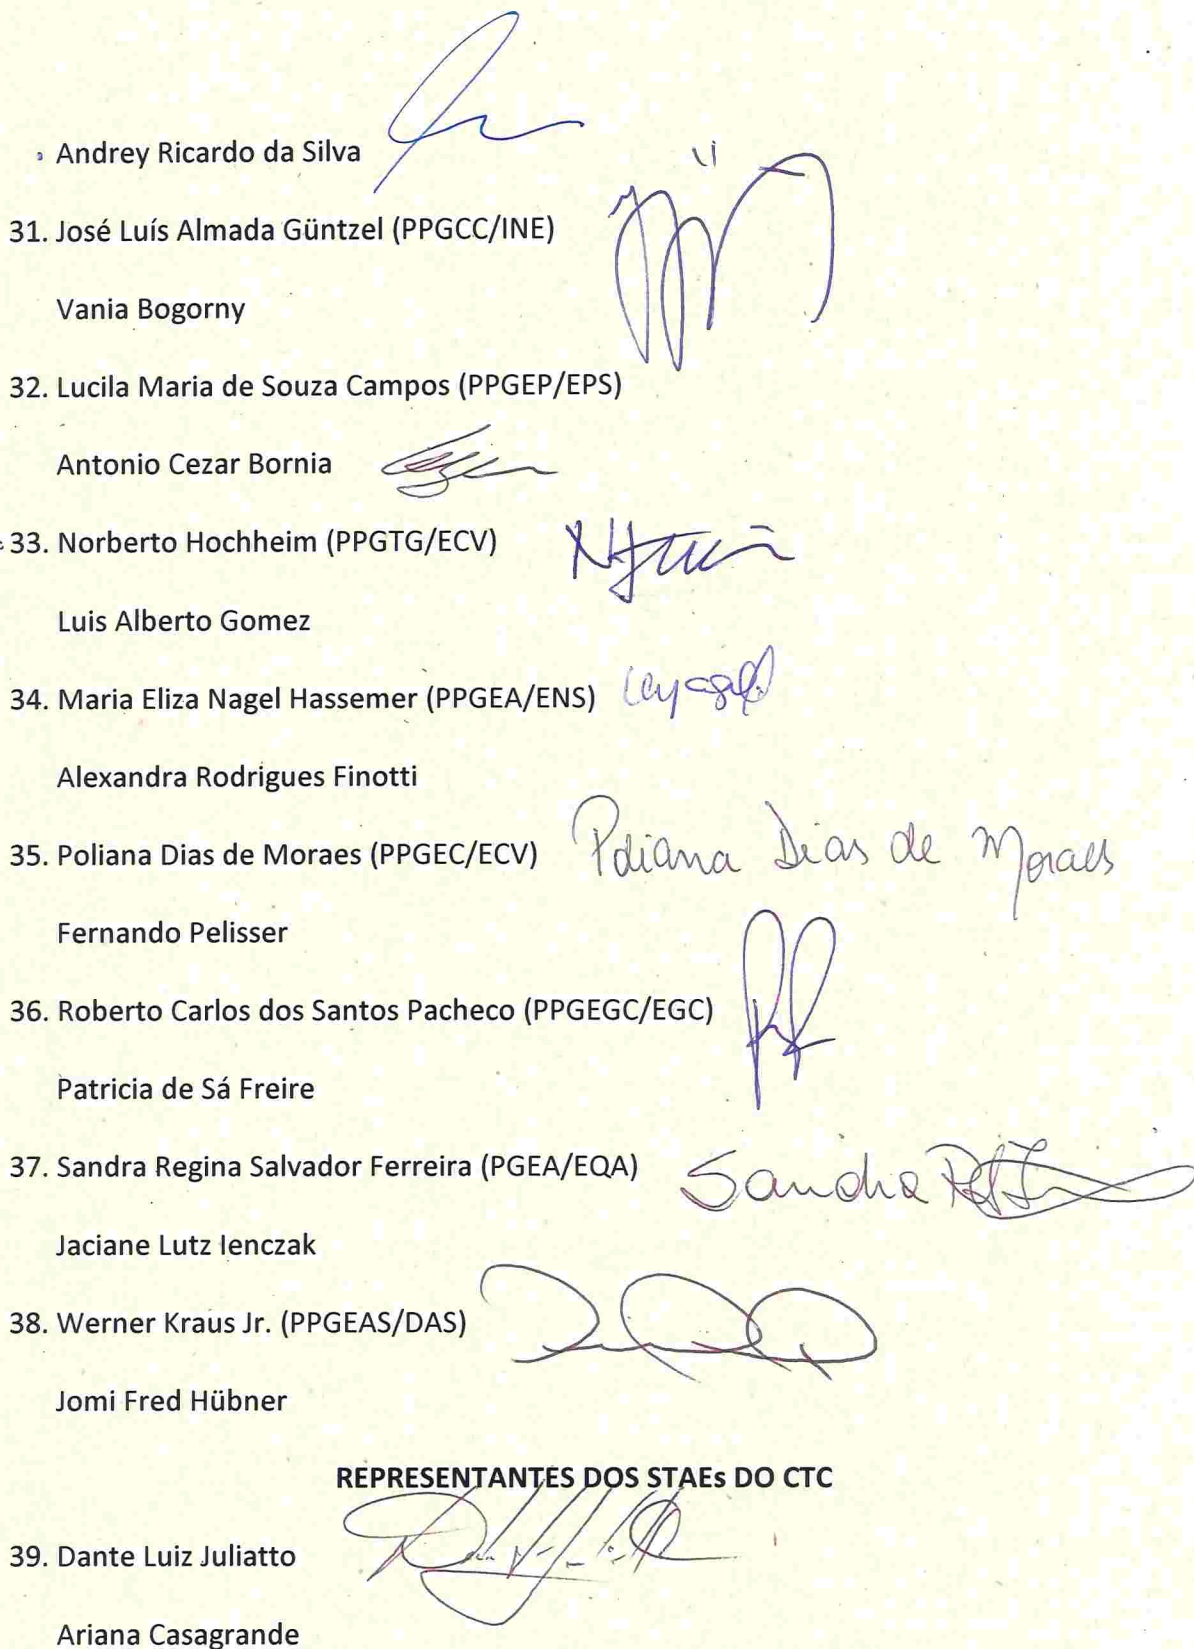 Andrey Ricardo da Silva
31. José Luís Almada Güntzel (PPGCC/INE)
Vania Bogorny
32. Lucila Maria de Souza Campos (PPGEP/EPS)
Antonio Cezar Bornia
33. Norberto Hochheim (PPGTG/ECV)
Luis Alberto Gomez
34. Maria Eliza Nagel Hassemer (PPGEA/ENS)
Alexandra Rodrigues Finotti
35. Poliana Dias de Moraes (PPGEC/ECV) Poliana Dias de Moraes
Fernando Pelisser
36. Roberto Carlos dos Santos Pacheco (PPGEGC/EGC)
Patricia de Sá Freire
37. Sandra Regina Salvador Ferreira (PGEA/EQA) Sandra
Jaciane Lutz Ienczak
38. Werner Kraus Jr. (PPGEAS/DAS)
Jomi Fred Hübner
REPRESENTANTES DOS STAEs DO CTC
39. Dante Luiz Juliatto
Ariana Casagrande